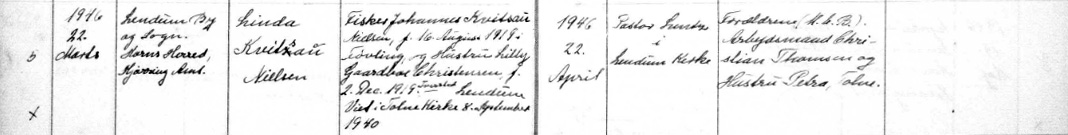 5
X
1946
22.
Marts
Lendum By
og Sogn.
Horns Herred,
Hjørring Amt.
Linda
Kvitzau
Nielsen
Fisker Johannes Kvitzau
Nielsen, f. 10 August 1919 i
Tövling og Hustru Lilly
Gaardboe Christensen, f.
2. Dec. 1919. Lendum
Viet i Tolne Kirke 8. September
1940
1946
22.
April
Pastor
i
Lendum Kirke
Forældrene (M. b. B.).
Arbejdsmand Chri-
stian Thomsen og
Hustru Petra, Tolne.